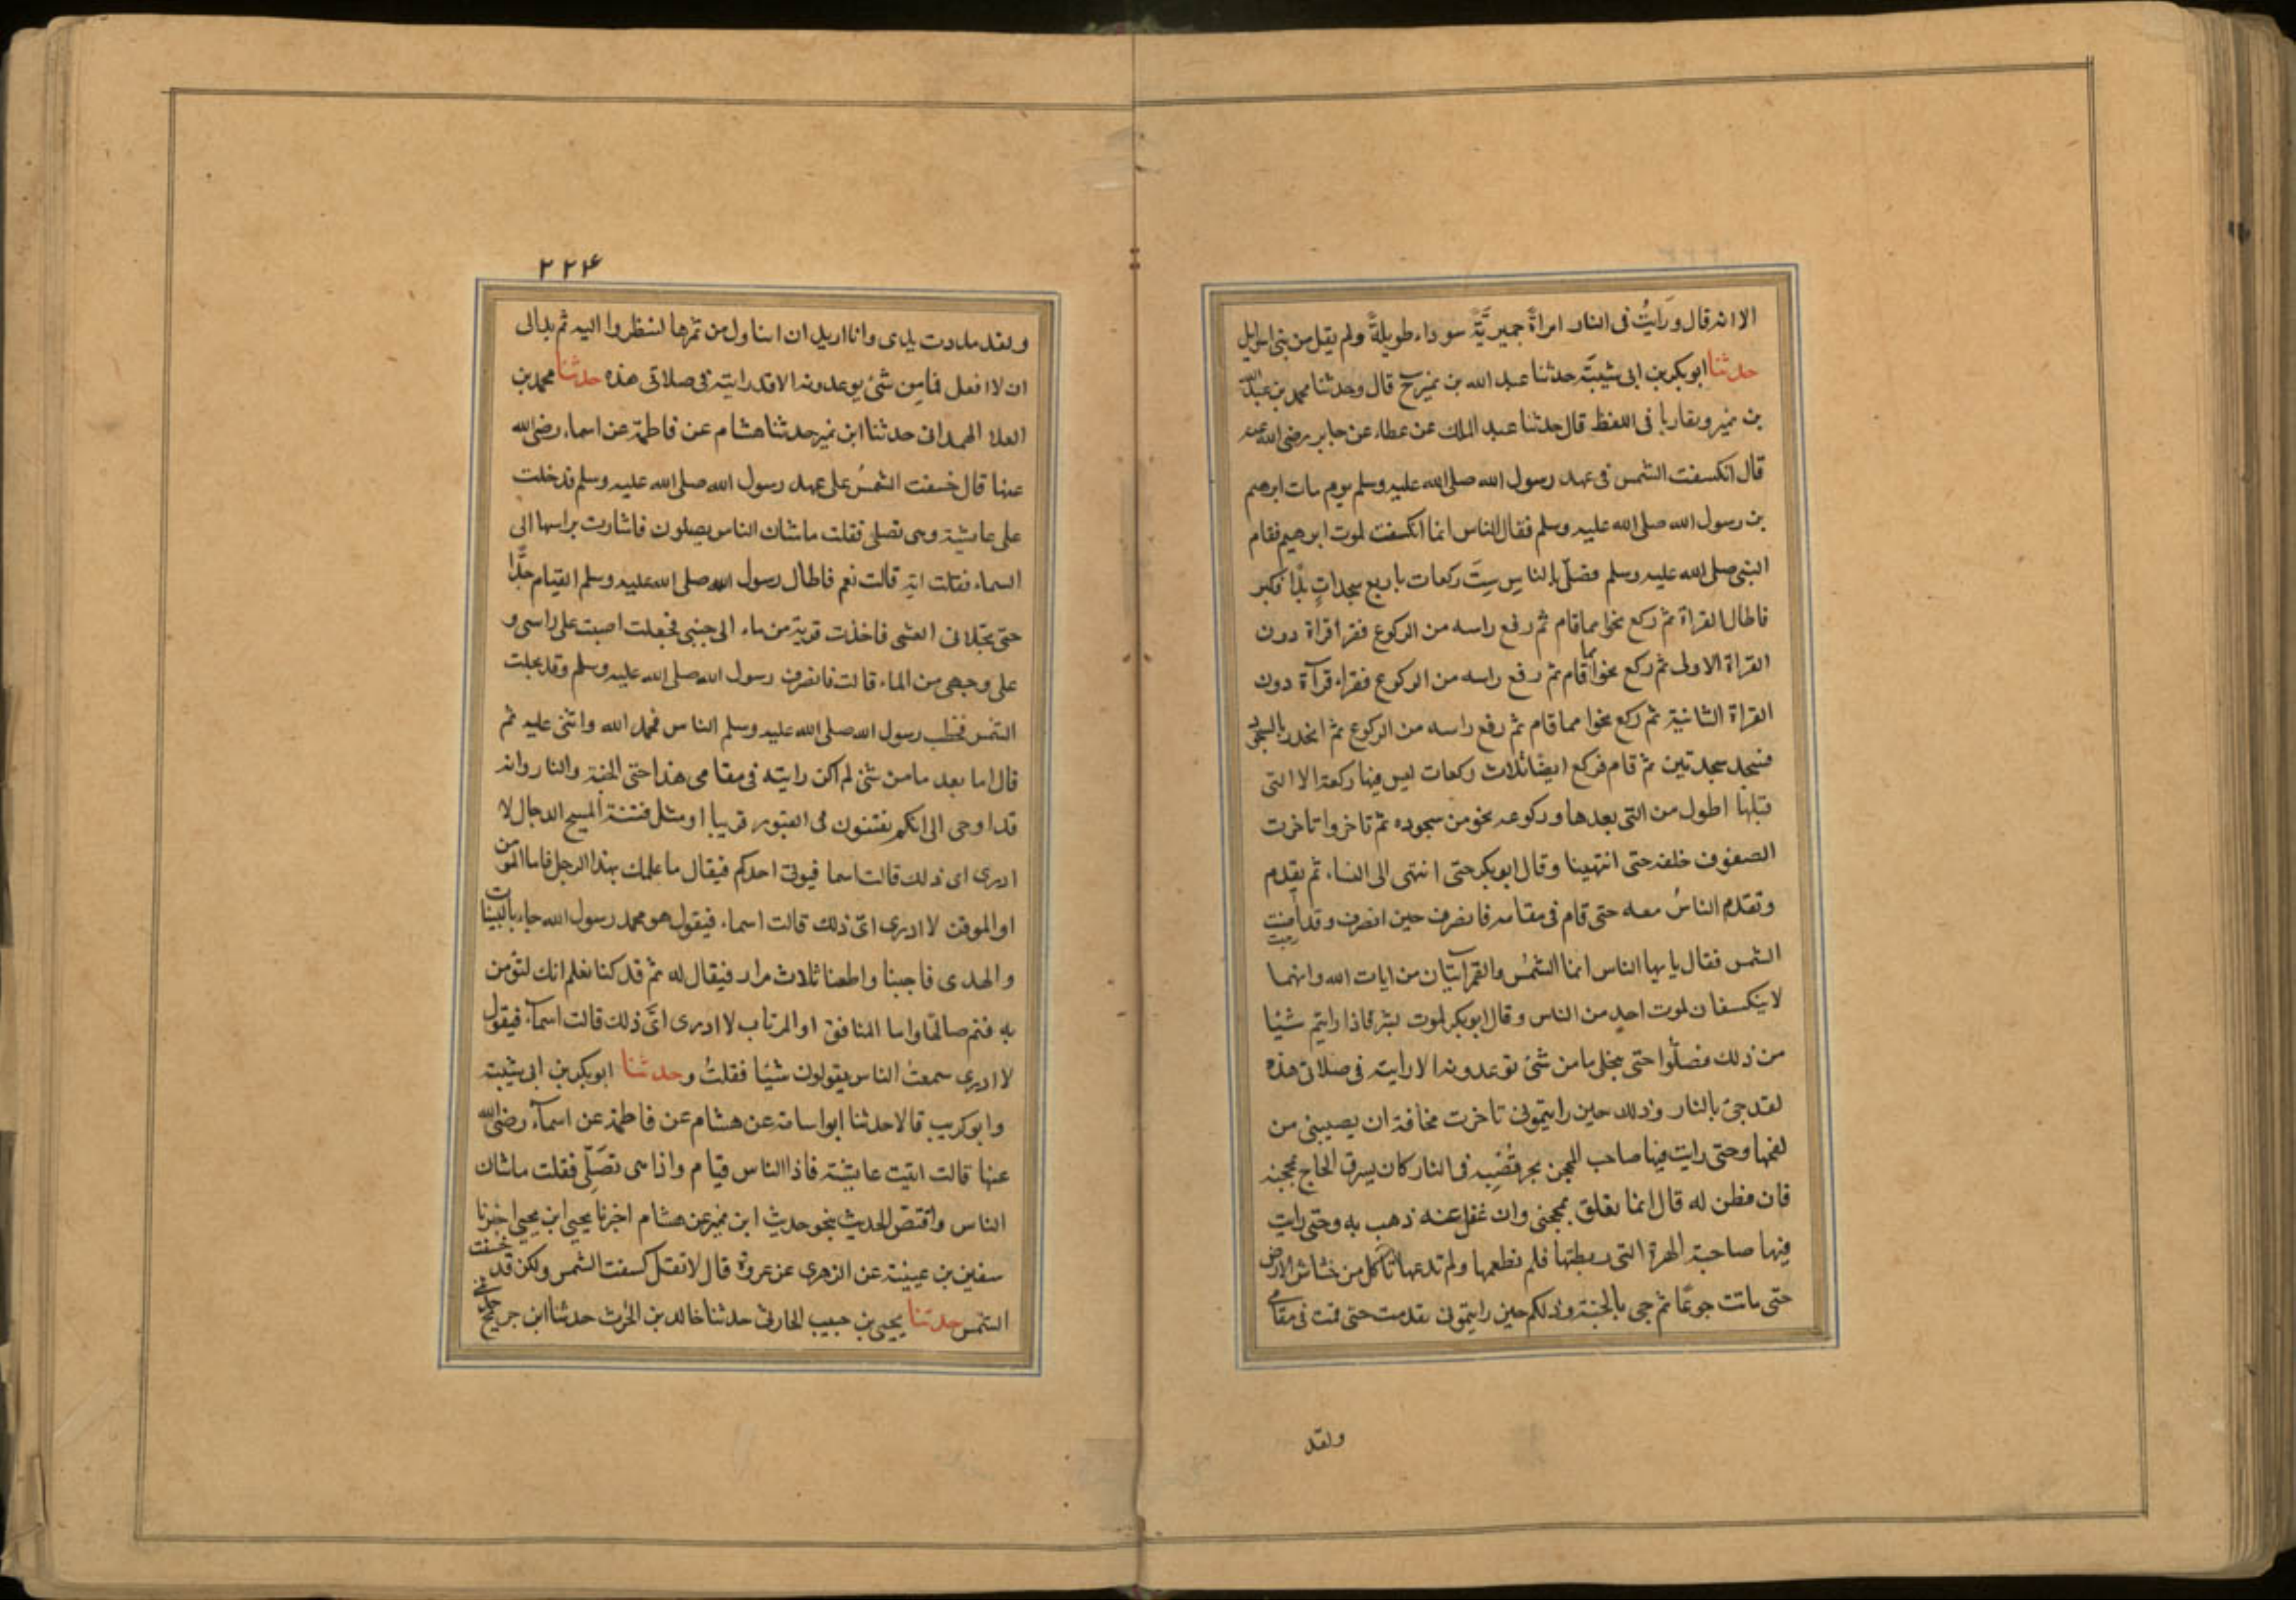 الا انه قال ورَايتُ فى النار امراةً حميريَّةً سوداء طويلةً ولم يقل من بنى اسرايل
حدثنا ابوبكر بن ابى شيبَة حدثنا عبد الله بن نمير ح قال وحدثنا محمد بن عبد الله
بن نمير وتقاربا فى اللفظ قال حدثنا عبد الملك عن عطاء عن جابر رضى الله عنه
قال انكسفت الشمس فى عهد رسول الله صلى الله عليه وسلم يوم مات ابرهيم
بن رسول الله صلى الله عليه وسلم فقال الناس انما انكسفت لموت ابرهيم فقام
النبى صلى الله عليه وسلم فصلّى بالناس سِتَّ ركعات باربع سجداتٍ بدَا فكبر
فاطال القراة ثم ركع نحوا مما قام ثم رفع راسه من الركوع فقرأ قراة دون
القراة الاولى ثم ركع نحوا مما قام ثم رفع راسه من الركوع فقراء قرآة دون
القراة الثانية ثم ركع نحوا مما قام ثم رفع راسه من الركوع ثم انحدر بالسجود
فسجد سجدتين ثم قام فركع ايضًا ثلاث ركعات ليس فيها ركعة الا التى
قبلها اطول من التى بعدها وركوعه نحو من سجوده ثم تاخر وتاخرت
الصفوف خلفه حتى انتهينا وقال ابوبكر حتى انتهى الى النساء ثم تقدم
وتقدم الناسُ معه حتى قام فى مقامه فانصرف حين انصرف وقد اضت
الشمس فقال يا يها الناس انما الشمسُ والقمر آيتان من ايات الله وانهما
لا ينكسفان لموت احدٍ من الناس وقال ابوبكر لموت بشر فاذا رايتم شيئا
من ذلك فصلّوا حتى ينجلى ما من شئ توعدونه الا رايته فى صلاتى هذه
لقد جئ بالنار وذلك حين رايتمونى تاخرت مخافة ان يصيبنى من
لفحها وحتى رايت فيها صاحب المحجن يجر قُصْبه فى النار كان يسرق الحاج بمحجنه
فان فطن له قال انما تعلق بمحجنى وان غفل عنه ذهب به وحتى رايت
فيها صاحبة الهرة التى ربطتها فلم تطعمها ولم تدعها تأكل من خشاش الارض
حتى ماتت جوعًا ثم جى بالجنة وذلكم حين رايتمونى تقدمت حتى قمت فى مقامى
ولقد
٢٢۴
ولقد مددت يدى وانا اريد ان اتناول من ثمرها لتنظروا اليه ثم بدالى
ان لا افعل فما من شئ توعدونه الا قد رايته فى صلاتى هذه حدثنا محمد بن
العلا الهمدانى حدثنا ابن نمير حدثنا هشام عن فاطمة عن اسماء رضى الله
عنها قال خسفت الشمسُ على عهد رسول الله صلى الله عليه وسلم فدخلت
على عايشة وهى تصلى فقلت ما شان الناس يصلون فاشارت براسها الى
السماء فقلت اية قالت نعم فاطال رسول الله صلى الله عليه وسلم القيام جدًّا
حتى تجلانى الغشى فاخذت قربة من ماء الى جنبى فجعلت اصبت على راسى و
على وجهى من الماء قالت فانصرف رسول الله صلى الله عليه وسلم وقد تجلت
الشمس فخطب رسول الله صلى الله عليه وسلم الناس فحمد الله واثنى عليه ثم
قال اما بعد ما من شئ لم اكن رايته فى مقامى هذا حتى الجنة والنار وانه
قد اوحى الى انكم تفتنون فى القبور قريبا او مثل فتنة المسيح الدجال لا
ادرى اى ذلك قالت اسما فيوتى احدكم فيقال ما علمك بهذا الرجل فاما المومن
او الموقن لا ادرى اىّ ذلك قالت اسماء فيقول هو محمد رسول الله جاء بالبينات
والهدى فاجبنا واطعنا ثلاث مرار فيقال له نم قد كنا نعلم انك لتؤمن
به فنم صالحًا واما المنافق او المرتاب لا ادرى اىَّ ذلك قالت اسمآء فيقول
لا ادرى سمعت الناس يقولون شيئا فقلتُ وحدثنا ابوبكر بن ابى شيبة
وابو كريب قالا حدثنا ابو اسامة عن هشام عن فاطمة عن اسمآء رضى الله
عنها قالت اتيت عايشة فاذا الناس قيام واذا هى تصَلِّى فقلت ما شان
الناس واقتصّ الحديث بنحو حديث ابن نمير عن هشام اخبرنا يحيى ابن يحيى اخبرنا
سفين بن عيينة عن الزهرى عن عروة قال لا تقل كسفت الشمس ولكن قل خسفت
الشمس حدثنا يحيى بن حبيب الحارثى حدثنا خالد بن الحرث حدثنا ابن جريح